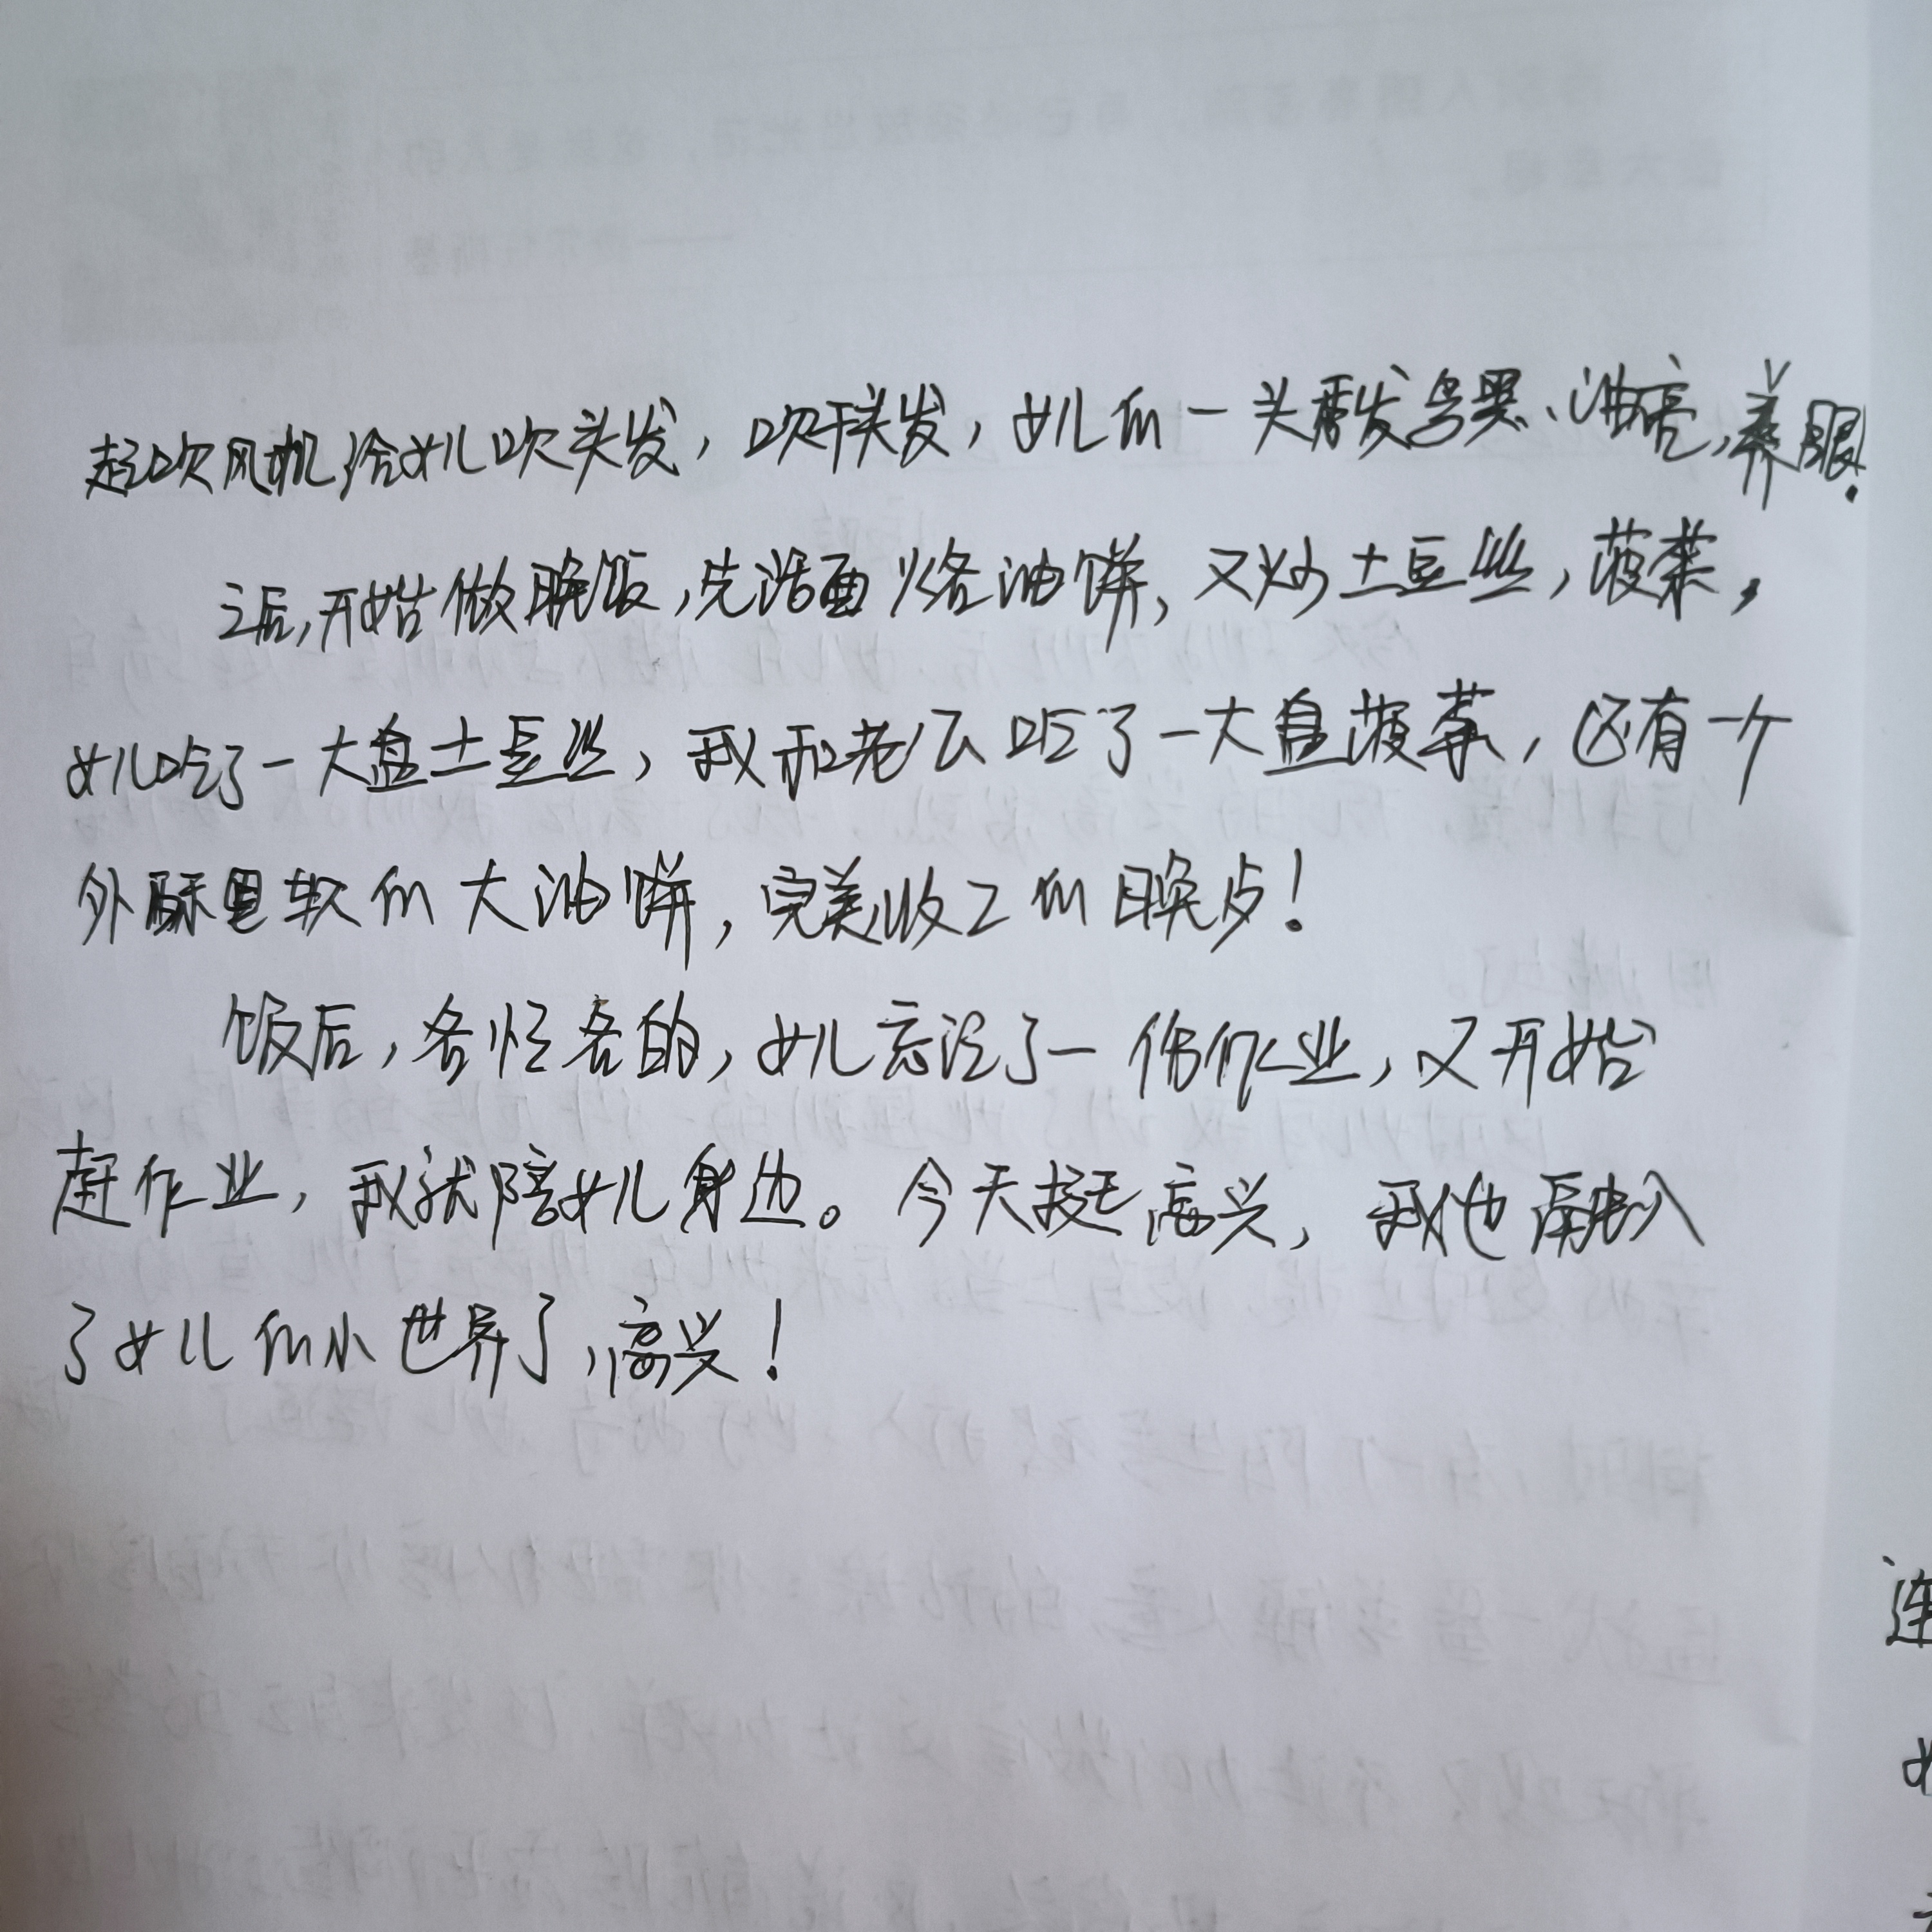 起吹风机给女儿吹头发，吹干头发，女儿的一头秀发乌黑、油亮，养眼！
之后，开始做晚饭，先活面烙油饼，又炒土豆丝，菠菜，
女儿吃了一大盘土豆丝，我和老公吃了一大盘菠菜，还有一个
外酥里软的大油饼，完美收工的晚点！
饭后，各忙各的，女儿忘记了一份作业，又开始
赶作业，我就陪女儿身边。今天挺高兴，我也融入
了女儿的小世界了，高兴！
连